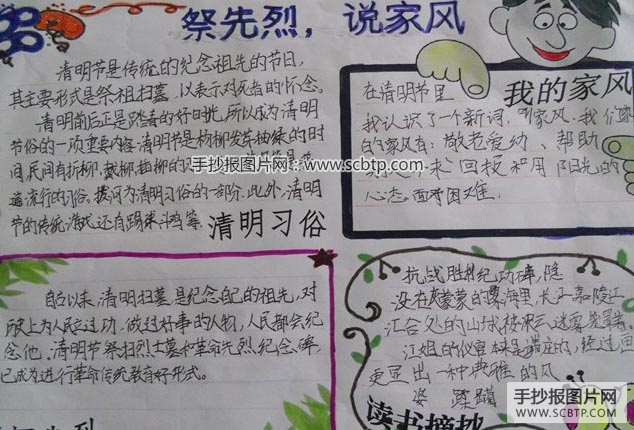 祭先烈，说家风
清明节是传统的纪念祖先的节日，
其主要形式是祭祖扫墓，以表示对死者的怀念。
清明前后正是踏青的好时光，所以成为清明
节俗的一项重要内容。清明节是杨柳发芽抽绿的时
间，民间有折柳、戴柳、插柳的
流行的习俗。拔河为清明习俗的一部分。此外，清明
节的传统
清明习俗
我的家风
在清明节里
我认识了一个新词，叫家风，我们家
的家风有：敬老爱幼、帮助
阳光的
心态面对困难。
自古以来，清明扫墓是纪念自己的祖先，对
历史上为人民立过功，做过好事的人物，人民都会纪
念他，清明节祭扫烈士墓和革命先烈纪念碑，
已成为进行革命传统教育好形式。
抗战胜利纪功碑，隐
没在灰蒙蒙的雾海里，长江嘉陵江
汇合处的山城
江姐的仪容
更显出一种典雅的风
姿
读书摘抄
手抄报图片网：www.scbtp.com
手抄报图片网
WWW.SCBTP.COM